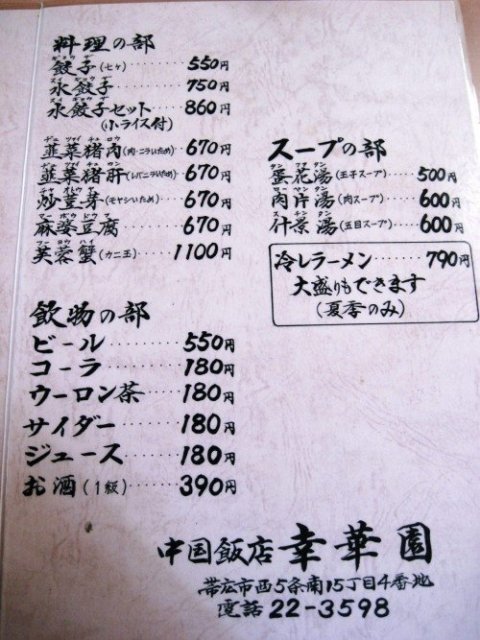 料理の部
餃子(七ケ)······550円
水餃子·······750円
水餃子セット·····860円
(小ライス付)
韮菜猪肉(肉・ニラいため)··670円
韮菜猪肝(レバニラいため)··670円
炒荳芽(モヤシいため)···670円
麻婆豆腐·······670円
芙蓉蟹(カニ玉)····1100円
スープの部
蛋花湯(玉子スープ)···500円
肉片湯(肉スープ)····600円
什景湯(五目スープ)···600円
冷しラーメン·····790円
大盛りもできます
(夏季のみ)
飲物の部
ビール·······550円
コーラ·······180円
ウーロン茶·····180円
サイダー······180円
ジュース······180円
お酒(1級)·····390円
中国飯店 幸華園
帯広市西5条南15丁目4番地
電話 22-3598